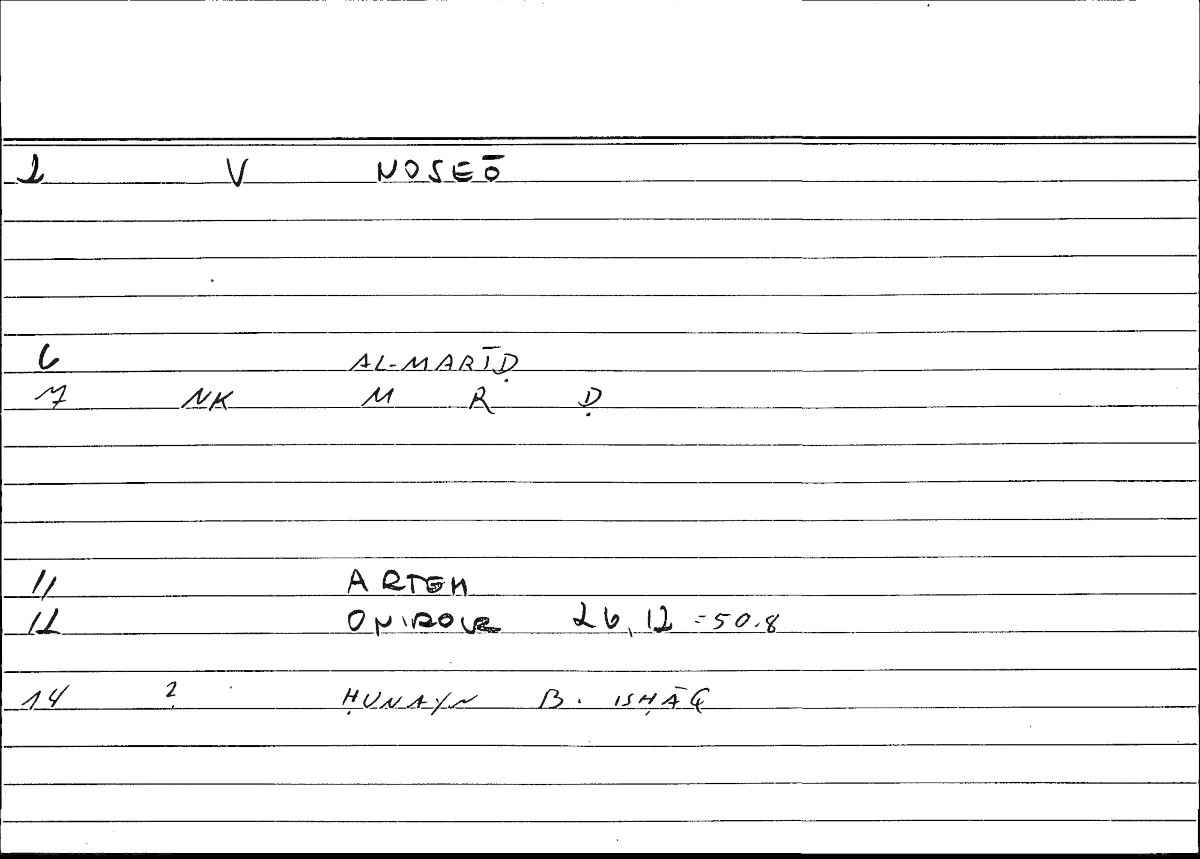 1 V NOSEŌ
6 AL-MARĪḌ
7 NK M R Ḍ
11 ARTEM
12 ONIROCR 26,12 =50.8
14 ? ḤUNAYN B. ISḤĀQ